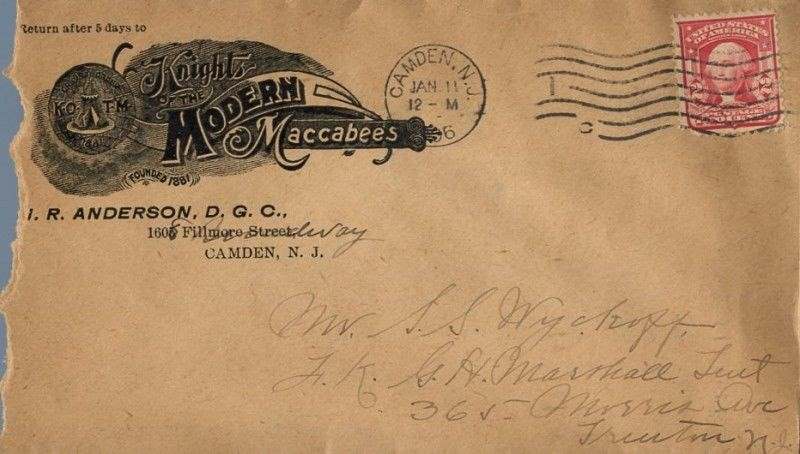 Return after 5 days to
K.O.T.M.
Knights
OF THE
MODERN
Maccabees
FOUNDED 1881
CAMDEN, N.J.
JAN 11
12-M
6
UNITED STATES
OF AMERICA
I. R. ANDERSON, D. G. C.,
1605 Fillmore Street,
Broadway
CAMDEN, N. J.
Mr. S. S. Wyckoff,
F. K. G. H. Marshall Tent
365 Morris Ave
Trenton N.J.